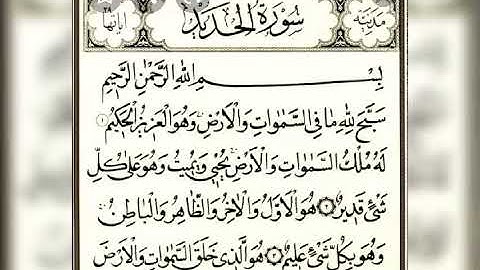 مدنية سورة الحديد آياتها
بِسْمِ اللهِ الرَّحْمٰنِ الرَّحِيمِ
سَبَّحَ لِلهِ مَا فِي السَّمٰوَاتِ وَالْاَرْضِ وَهُوَ الْعَزِيزُ الْحَكِيمُ ١
لَهُ مُلْكُ السَّمٰوَاتِ وَالْاَرْضِ يُحْيِي وَيُمِيتُ وَهُوَ عَلٰى كُلِّ
شَيْءٍ قَدِيرٌ ٢ هُوَ الْاَوَّلُ وَالْاٰخِرُ وَالظَّاهِرُ وَالْبَاطِنُ
وَهُوَ بِكُلِّ شَيْءٍ عَلِيمٌ ٣ هُوَ الَّذِي خَلَقَ السَّمٰوَاتِ وَالْاَرْضَ